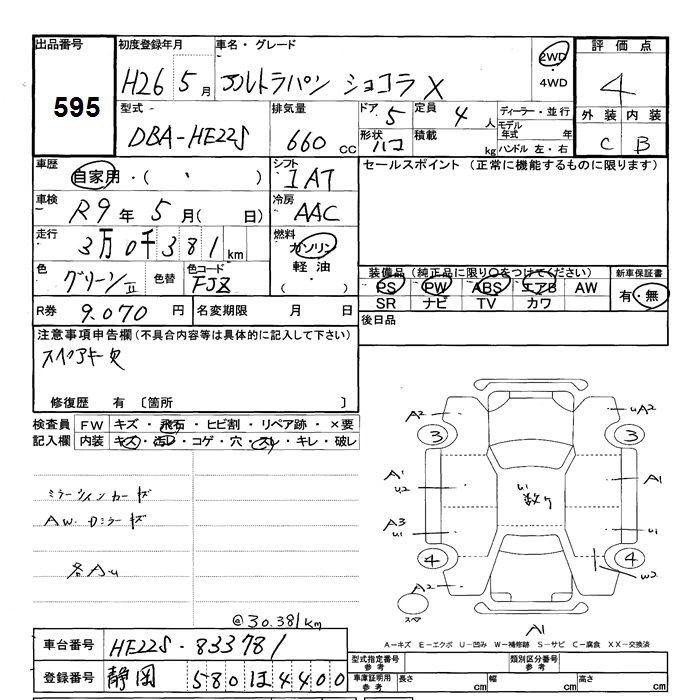 出品番号
595
初度登録年月
H26 5月
車名・グレード
アルトラパン ショコラ X
2WD
・
4WD
評価点
4
外装 内装
C B
型式
DBA-HE22S
排気量
660 CC
ドア 5
形状 ハコ
定員 4 人
積載 kg
ディーラー・並行
モデル年式 年
ハンドル 左・右
車歴
自家用・( )
シフト
IAT
セールスポイント (正常に機能するものに限ります)
車検
R9年5月( 日)
冷房
AAC
走行
3万0千381km
燃料
ガソリン
軽油
( )
色
グリーンⅡ
色替
色コード
FJZ
装備品(純正品に限り○をつけてください)
PS PW ABS エアB AW
SR ナビ TV カワ
新車保証書
有・無
R券 9.070円
名変期限 月 日
後日品
注意事項申告欄(不具合内容等は具体的に記入して下さい)
修復歴 有 〔箇所 〕
検査員記入欄
FW キズ・飛石・ヒビ割・リペア跡・×要
内装 キズ・汚レ・コゲ・穴・スレ・キレ・破レ
A2 3 3 uA2
A1 u2 A1
A3 u1 u1
4 4 w2
A2
A1
ミラーウインカーキズ
AW.Dミラーキズ
各Au
スペア
@30.381km
A－キズ E－エクボ U－凹み W－補修跡 S－サビ C－腐食 XX－交換済
車台番号 HE22S-833781
登録番号 静岡 580 ほ 4400
型式指定番号 参考
類別区分番号 参考
車庫証明用 参考 長さ cm 幅 cm 高さ cm